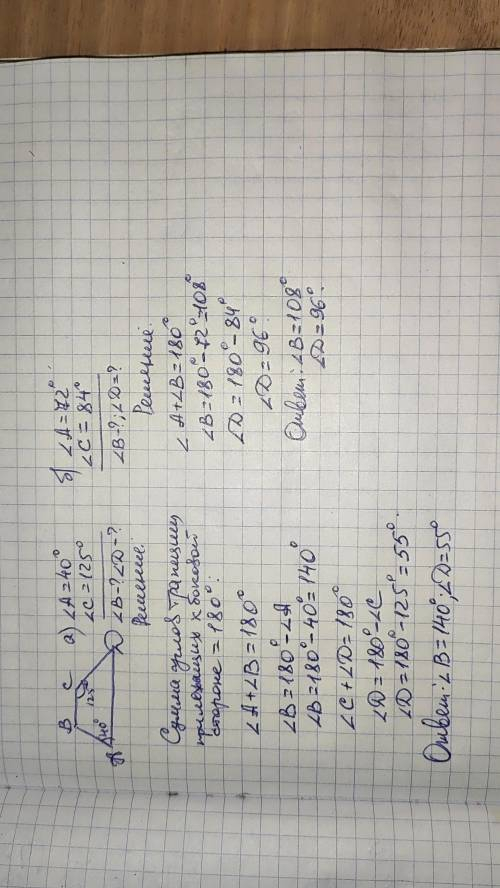 B C
125°
40°
A D
а) ∠A=40°
∠C=125°
∠B-? ∠D-?
Решение:
Сумма углов трапеции
прилежащих к боковой
стороне = 180°:
∠A+∠B=180°
∠B=180°-∠A
∠B=180°-40°=140°
∠C+∠D=180°
∠D=180°-∠C
∠D=180°-125°=55°.
Ответ: ∠B=140°; ∠D=55°
б) ∠A=72°.
∠C=84°
∠B-?; ∠D=?
Решение.
∠A+∠B=180°
∠B=180°-72°=108°
∠D=180°-84°
∠D=96°
Ответ: ∠B=108°
∠D=96°.